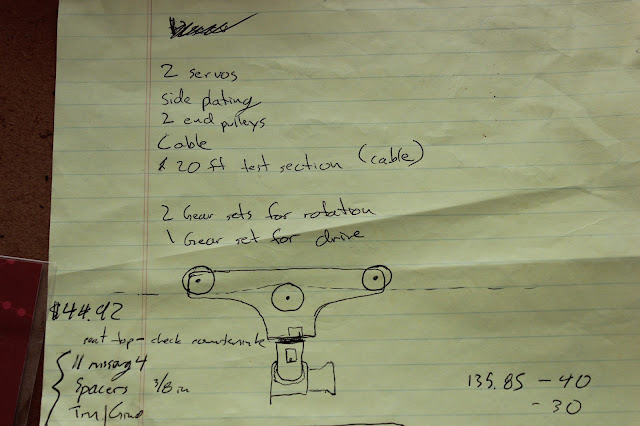 2 servos
side plating
2 end pulleys
Cable
20 ft test section (cable)
2 Gear sets for rotation
1 Gear set for drive
$44.92
top - check
11 missing 4
Spacers 3/8 in
135.85 - 40
- 30